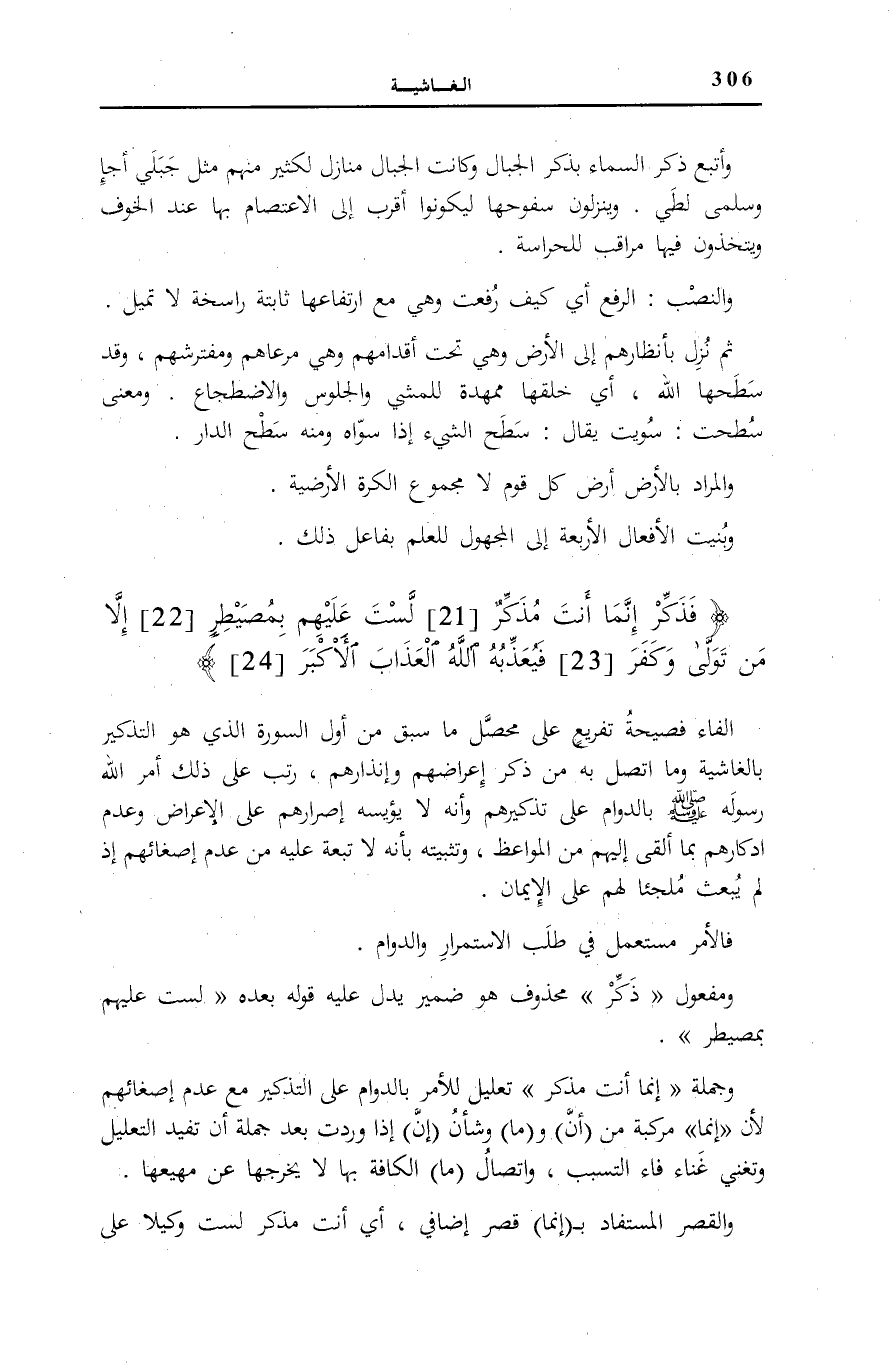 306
الغـاشيـة
وأتبع ذكر السماء بذكر الجبال وكانت الجبال منازل لكثير منهم مثل جَبَلَي أجإ
وسلمى لطَي . وينزلون سفوحها ليكونوا أقرب إلى الاعتصام بها عند الخوف
ويتخذون فيها مراقب للحراسة .
والنصْب : الرفع أي كيف رُفعت وهي مع ارتفاعها ثابتة راسخة لا تميل .
ثم نُزِل بأنظارهم إلى الأرض وهي تحت أقدامهم وهي مرعاهم ومفترشهم ، وقد
سَطَحها الله ، أي خلقها ممهدة للمشي والجلوس والاضطجاع . ومعنى
سُطحت : سُويت يقال : سَطَح الشيء إذا سوّاه ومنه سَطْح الدار .
والمراد بالأرض أرض كل قوم لا مجموع الكرة الأرضية .
وبُنيت الأفعال الأربعة إلى المجهول للعلم بفاعل ذلك .
﴿ فَذَكِّرْ إِنَّمَا أَنتَ مُذَكِّرٌ [21] لَّسْتَ عَلَيْهِم بِمُصَيْطِرٍ [22] إِلَّا
مَن تَوَلَّىٰ وَكَفَرَ [23] فَيُعَذِّبُهُ ٱللَّهُ ٱلْعَذَابَ ٱلْأَكْبَرَ [24] ﴾
الفاء فصيحةُ تفريعٍ على محصَّل ما سبق من أول السورة الذي هو التذكير
بالغاشية وما اتصل به من ذكر إعراضهم وإنذارهم ، رتب على ذلك أمر الله
رسولَه ﷺ بالدوام على تذكيرهم وأنه لا يؤيسه إصرارهم على الإعراض وعدم
ادكارهم بما ألقى إليهم من المواعظ ، وتثبيته بأنه لا تبعة عليه من عدم إصغائهم إذ
لم يُبعث مُلجئا لهم على الإيمان .
فالأمر مستعمل في طلَب الاستمرارِ والدوام .
ومفعول « ذَكِّرْ » محذوف هو ضمير يدل عليه قوله بعده « لست عليهم
بمصيطر » .
وجملة « إنما أنت مذكر » تعليل للأمر بالدوام على التذكير مع عدم إصغائهم
لأن «إنما» مركبة من (أنَّ) و(ما) وشأنُ (إنَّ) إذا وردت بعد جملة أن تفيد التعليل
وتغني غَناء فاء التسبب ، واتصالُ (ما) الكافة بها لا يخرجها عن مهيعها .
والقصر المستفاد بـ(إنما) قصر إضافي ، أي أنت مذكر لست وكيلا على